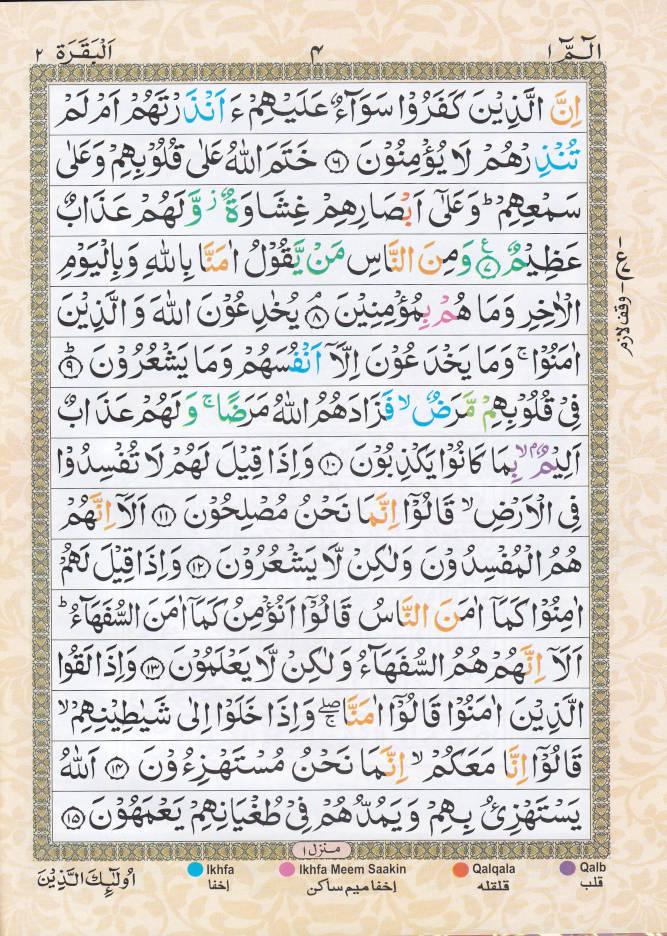 الٓمّٓ ۱ ۴ اَلْبَقَرَة ۲
اِنَّ الَّذِيْنَ كَفَرُوْا سَوَآءٌ عَلَيْهِمْ ءَاَنْذَرْتَهُمْ اَمْ لَمْ
تُنْذِرْهُمْ لَا يُؤْمِنُوْنَ ۶ خَتَمَ اللّٰهُ عَلٰى قُلُوْبِهِمْ وَعَلٰى
سَمْعِهِمْ ؕ وَعَلٰٓى اَبْصَارِهِمْ غِشَاوَةٌ ؗ وَّلَهُمْ عَذَابٌ
عَظِيْمٌ ۷ ع وَمِنَ النَّاسِ مَنْ يَّقُوْلُ اٰمَنَّا بِاللّٰهِ وَبِالْيَوْمِ
الْاٰخِرِ وَمَا هُمْ بِمُؤْمِنِيْنَ ۘ ۸ يُخٰدِعُوْنَ اللّٰهَ وَالَّذِيْنَ
اٰمَنُوْا ۚ وَمَا يَخْدَعُوْنَ اِلَّاۤ اَنْفُسَهُمْ وَمَا يَشْعُرُوْنَ ؕ ۹
فِىْ قُلُوْبِهِمْ مَّرَضٌ ۙ فَزَادَهُمُ اللّٰهُ مَرَضًا ۚ وَلَهُمْ عَذَابٌ
اَلِيْمٌۢ ۙ بِمَا كَانُوْا يَكْذِبُوْنَ ۱۰ وَاِذَا قِيْلَ لَهُمْ لَا تُفْسِدُوْا
فِى الْاَرْضِ ۙ قَالُوْٓا اِنَّمَا نَحْنُ مُصْلِحُوْنَ ۱۱ اَلَاۤ اِنَّهُمْ
هُمُ الْمُفْسِدُوْنَ وَلٰكِنْ لَّا يَشْعُرُوْنَ ۱۲ وَاِذَا قِيْلَ لَهُمْ
اٰمِنُوْا كَمَاۤ اٰمَنَ النَّاسُ قَالُوْٓا اَنُؤْمِنُ كَمَاۤ اٰمَنَ السُّفَهَآءُ ؕ
اَلَاۤ اِنَّهُمْ هُمُ السُّفَهَآءُ وَلٰكِنْ لَّا يَعْلَمُوْنَ ۱۳ وَاِذَا لَقُوا
الَّذِيْنَ اٰمَنُوْا قَالُوْٓا اٰمَنَّا ۚۖ وَاِذَا خَلَوْا اِلٰى شَيٰطِيْنِهِمْ ۙ
قَالُوْٓا اِنَّا مَعَكُمْ ۙ اِنَّمَا نَحْنُ مُسْتَهْزِءُوْنَ ۱۴ اَللّٰهُ
يَسْتَهْزِئُ بِهِمْ وَيَمُدُّهُمْ فِىْ طُغْيَانِهِمْ يَعْمَهُوْنَ ۱۵
وقف لازم
منزل ۱
Ikhfa Ikhfa Meem Saakin Qalqala Qalb
اخفا اخفا میم ساکن قلقله قلب
اُولٰٓئِكَ الَّذِيْنَ